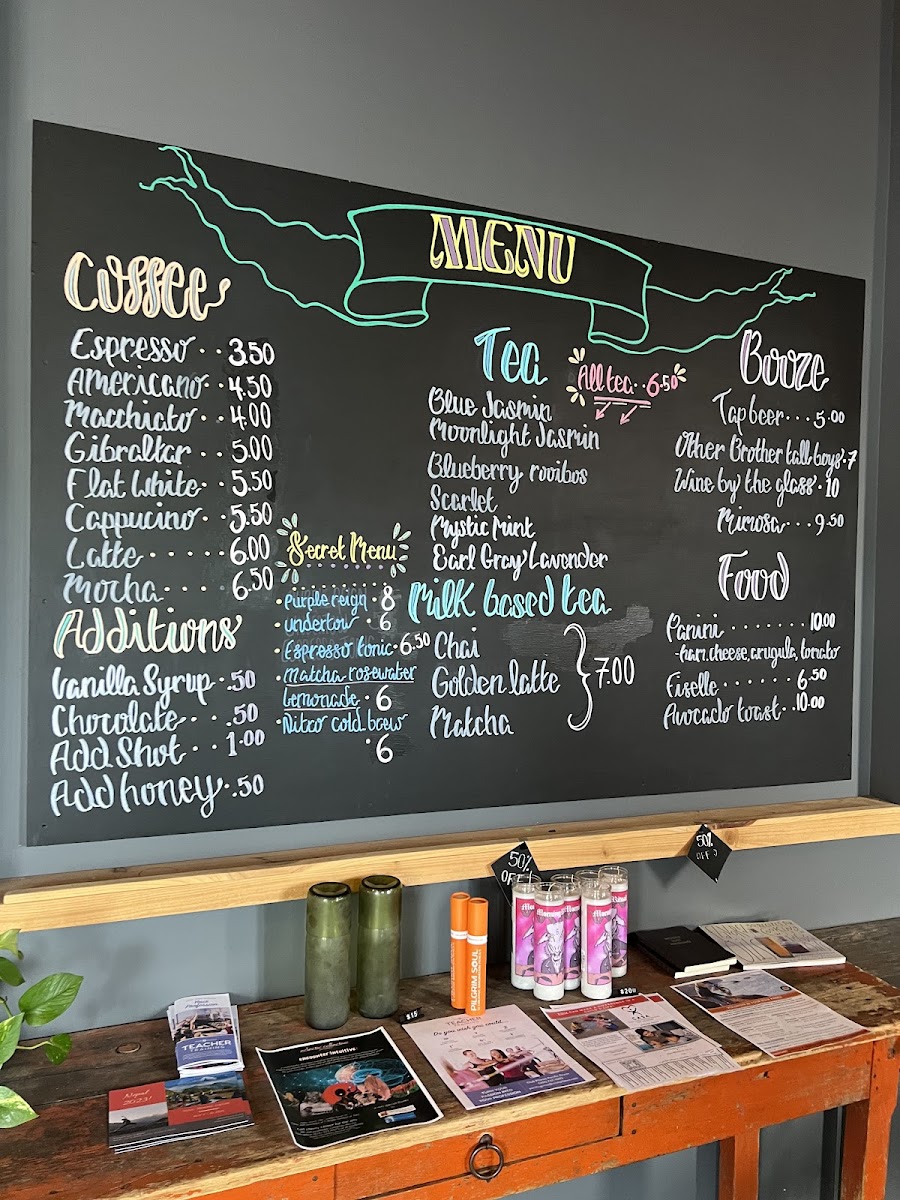 MENU
Coffee
Espresso . . 3.50
Americano . . 4.50
Macchiato . . 4.00
Gibraltar . . 5.00
Flat White . . 5.50
Cappucino . . 5.50
Latte . . . . . 6.00
Mocha . . . . . 6.50
Additions
Vanilla Syrup . .50
Chocolate . . .50
Add Shot . . 1.00
Add honey . .50
Secret Menu
• Purple reign . 8
• undertow . 6
• Espresso tonic . 6.50
• Matcha rosewater
Lemonade . 6
• Nitro cold brew
. 6
Tea
All tea . . 6.50
Blue Jasmin
Moonlight Jasmin
Blueberry rooibos
Scarlet
Mystic Mint
Earl Grey Lavender
Milk based tea
Chai
Golden latte } 7.00
Matcha
Booze
Tap beer . . . 5.00
Other Brother tall boys . 7
Wine by the glass . 10
Mimosa . . . 9.50
Food
Panini . . . . . . . . 10.00
-ham, cheese, arugula, tomato
Fiselle . . . . . . . 6.50
Avocado toast . . 10.00
50%
OFF
50%
OFF
PILGRIM SOUL
$15
$20
TEACHER
TRAINING
Nepal
2023!
encounter intuitive
TEACHER
Do you wish you could...